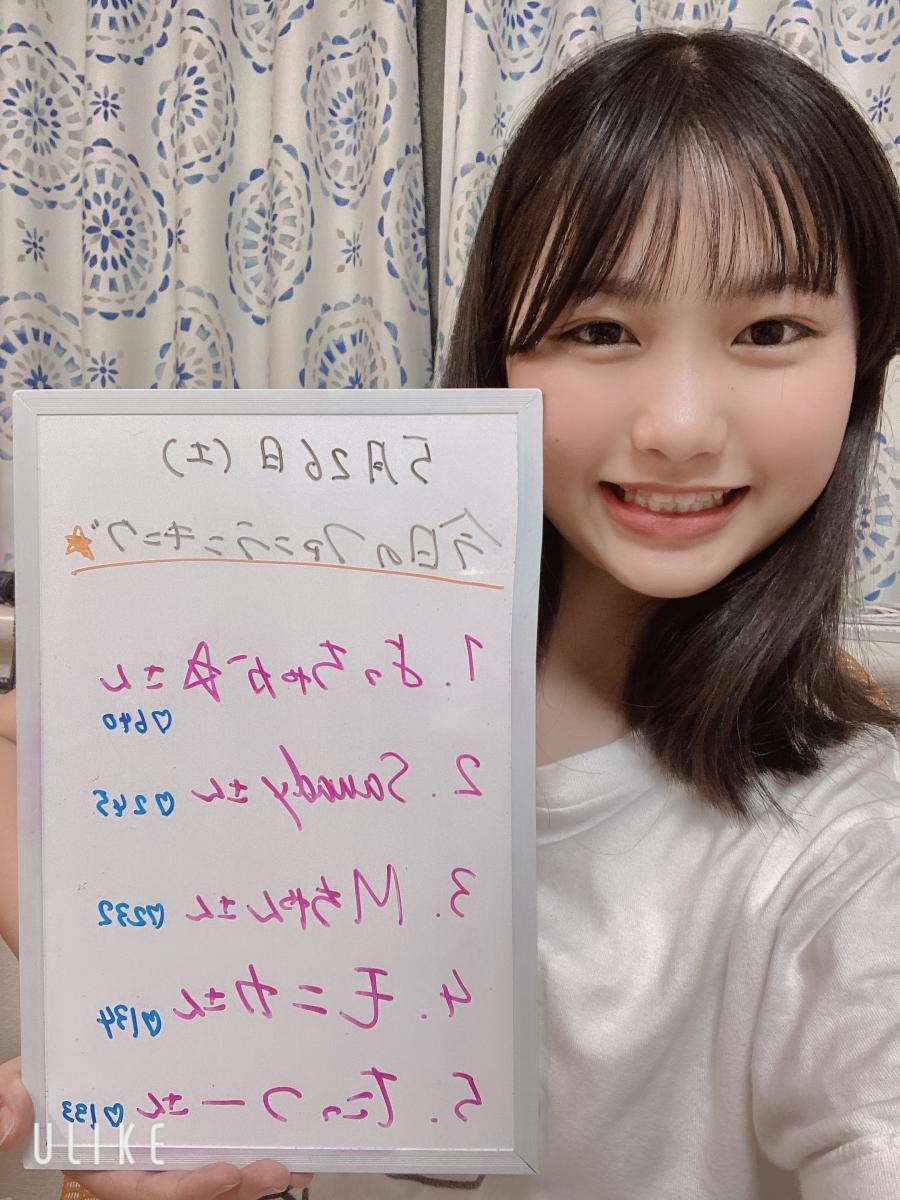 5月26日(土)
今日のファンランキング★
1. よっちゃが☆さん
♡640
2. Saundyさん ♡245
3. Mちゃんさん ♡232
4. モニカさん ♡134
5. たっつーさん ♡133
ULIKE